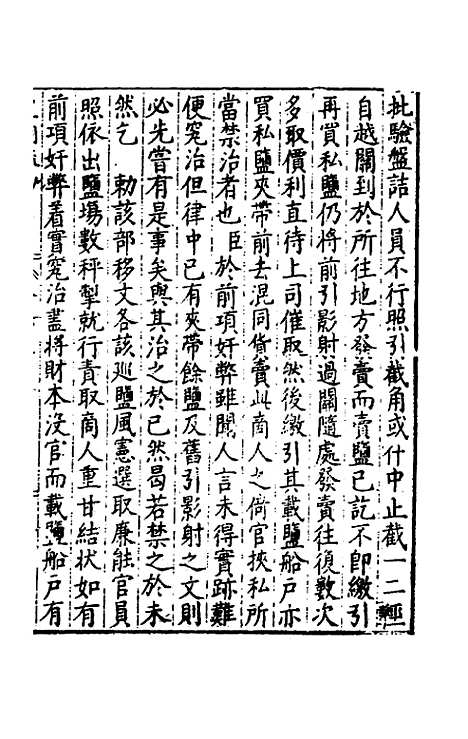 批驗盤詰人員不行照引截角或什中止截一二輕
自越關到於所往地方發賣而賣鹽已訖不即繳引
再買私鹽仍將前引影射過關隨處發賣往復數次
多取價利直待上司催取然後繳引其載鹽船戶亦
買私鹽夾帶前去混同貨賣此商人之倚官挾私所
當禁治者也臣於前項奸弊雖聞人言未得實跡難
便究治但律中已有夾帶餘鹽及舊引影射之文則
必先嘗有是事矣與其治之於已然曷若禁之於未
然乞 勑該部移文各該巡鹽風憲選取廉能官員
照依出鹽場數秤掣就行責取商人重甘結狀如有
前項奸弊着實究治盖將財本沒官而載鹽船戶有